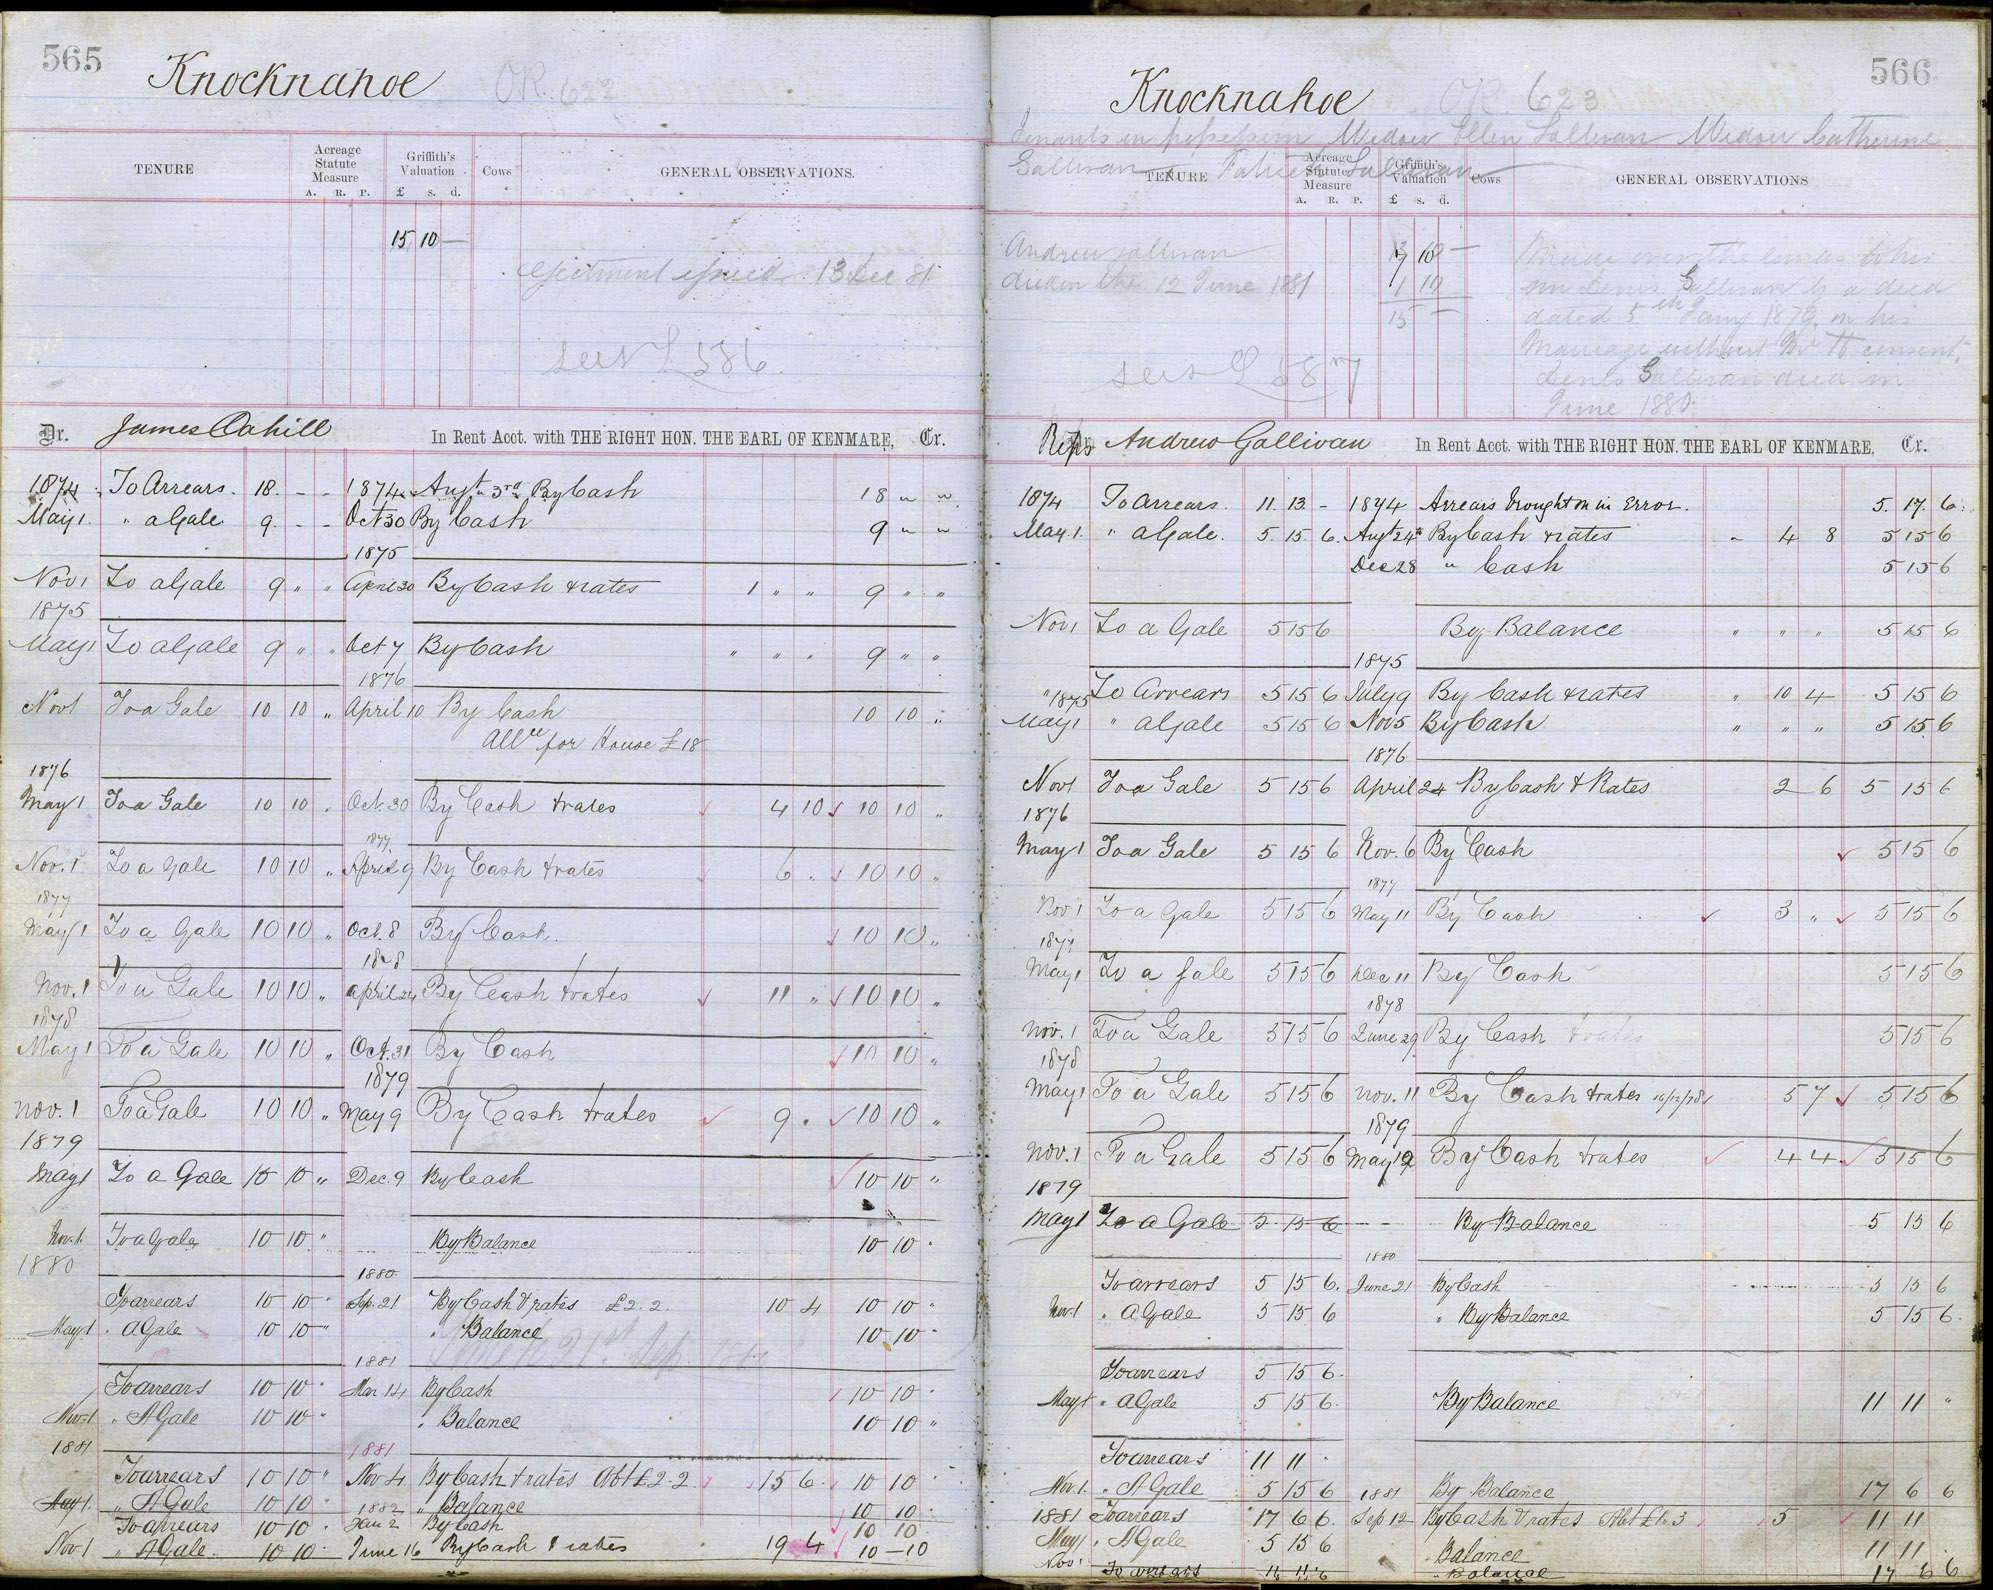 565
Knocknahoe
OR. 622
TENURE
Acreage Statute Measure
A. R. P.
Griffith's Valuation
£ s. d.
Cows
GENERAL OBSERVATIONS.
15 10 —
Ejectment issued 13 Dec 81
see L 586
Dr. James Cahill In Rent Acct. with THE RIGHT HON. THE EARL OF KENMARE, Cr.
1874 To Arrears. 18. - - 1874 Augt 3rd By Cash 18 " "
May 1. " a Gale. 9. - - Oct 30 By Cash 9 " "
1875
Nov 1 To a Gale 9 " " April 30 By Cash & rates 1 " " 9 " "
1875
May 1 To a Gale 9 " " Oct 7 By Cash " " " 9 " "
1876
Nov 1 To a Gale 10 10 " April 10 By Cash 10 10 "
Allce for House £18
1876
May 1 To a Gale 10 10 " Oct. 30 By Cash & rates 4 10 10 10 "
1877
Nov. 1 To a Gale 10 10 " April 9 By Cash & rates 6 " 10 10 "
1877
May 1 To a Gale 10 10 " Oct. 8 By Cash. 10 10 "
1878
Nov. 1 To a Gale 10 10 " April 24 By Cash & rates 11 " 10 10 "
1878
May 1 To a Gale 10 10 " Oct. 31 By Cash 10 10 "
1879
Nov. 1 To a Gale 10 10 " May 9 By Cash & rates 9 . 10 10 "
1879
May 1 To a Gale 10 10 " Dec. 9 By Cash 10 10 "
Nov. 1. To a Gale 10 10 " By Balance 10 10 "
1880
1880.
To arrears 10 10 " Sep. 21 By Cash & rates £2.2. 10 4 10 10 "
May 1 " A Gale 10 10 " " Balance 10 10 "
1881
To arrears 10 10 " Mar 14 By Cash 10 10 "
Nov. 1 " A Gale 10 10 " " Balance 10 10 "
1881
1881
To arrears 10 10 " Nov 4 By Cash & rates Abt £2.2 15 6. 10 10 "
May 1. " A Gale 10 10 " 1882 " Balance 10 10
To arrears 10 10 " Jan 2 By Cash 10 10
Nov 1 " A Gale. 10 10 " June 16 By Cash & rates 19 4 10 - 10
566
Knocknahoe
OR 623
Tenants in possession Widow Ellen Sullivan Widow Catherine
Gallivan Patrick Sullivan
TENURE
Acreage Statute Measure
A. R. P.
Griffith's Valuation
£ s. d.
Cows
GENERAL OBSERVATIONS
Andrew Gallivan
died on the 12 June 1881
10 —
1 10
15 —
Made over the lands to his
son Denis Gallivan by a deed
dated 5th Jany 1879, on his
Marriage without consent.
Denis Gallivan died in
June 1880.
see L 587
Reps Andrew Gallivan In Rent Acct. with THE RIGHT HON. THE EARL OF KENMARE, Cr.
1874 To Arrears. 11. 13. - 1874 Arrears brought on in Error. 5. 17. 6.
May 1. " a Gale. 5. 15. 6. Augt 24th By Cash & rates - 4 8 5 15 6
Dec 28 " Cash 5 15 6
Nov 1 To a Gale 5 15 6 By Balance " " " 5 15 6
1875
" 1875 To Arrears 5 15 6 July 9 By Cash & rates " 10 4 5 15 6
May 1 " a Gale 5 15 6 Nov 5 By Cash " " " 5 15 6
1876
Nov 1 To a Gale 5 15 6 April 24 By Cash & Rates 2 6 5 15 6
1876
May 1 To a Gale 5 15 6 Nov. 6 By Cash 5 15 6
1877
Nov 1 To a Gale 5 15 6 May 11 By Cash 3 " 5 15 6
1877
May 1 To a Gale 5 15 6 Dec 11 By Cash 5 15 6
1878
Nov. 1 To a Gale 5 15 6 June 29 By Cash & rates 5 15 6
1878
May 1 To a Gale 5 15 6 Nov. 11 By Cash & rates 16/12/78 5 7 5 15 6
1879
Nov. 1 To a Gale 5 15 6 May 12 By Cash & rates 4 4 5 15 6
1879
May 1 To a Gale 5 15 6 By Balance 5 15 6
1880
To arrears 5 15 6. June 21 By Cash 5 15 6
Nov. 1 " A Gale 5 15 6 " By Balance 5 15 6.
To arrears 5 15 6.
May 1 " A Gale 5 15 6. By Balance 11 11 "
To arrears 11 11 .
Nov. 1. " A Gale 5 15 6 1881 By Balance 17 6 6
1881 To arrears 17 6 6. Sep 12 By Cash & rates 5 11 11
May 1 " A Gale 5 15 6 Balance 11 11 .
Nov 1 To arrears 11 11 6 Balance 17 6 6